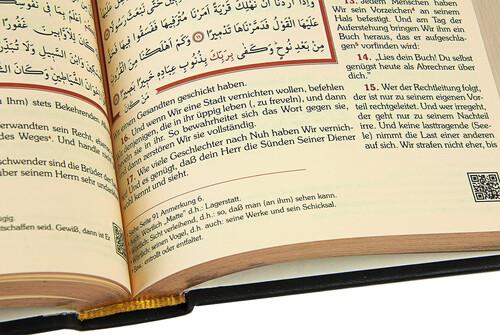 وَإِذَا أَرَدْنَا أَن نُّهْلِكَ قَرْيَةً أَمَرْنَا مُتْرَفِيهَا فَفَسَقُوا فِيهَا
عَلَيْهَا الْقَوْلُ فَدَمَّرْنَاهَا تَدْمِيرًا وَكَمْ أَهْلَكْنَا مِنَ الْقُرُونِ
مِن بَعْدِ نُوحٍ وَكَفَى بِرَبِّكَ بِذُنُوبِ عِبَادِهِ خَبِيرًا بَصِيرًا
einen Gesandten geschickt haben.
16. Und wenn Wir eine Stadt vernichten wollen, befehlen
denjenigen, die in ihr üppig leben (, zu freveln), und dann
eln sie in ihr. So bewahrheitet sich das Wort gegen sie,
dann zerstören Wir sie vollständig.
17. Wie viele Geschlechter nach Nuh haben Wir vernich-
Und es genügt, daß dein Herr die Sünden Seiner Diener
ohl kennt und sieht.
Siehe Seite 91 Anmerkung 6.
Wörtlich „Matte" d.h.: Lagerstatt.
Wörtlich: Sicht verleihend, d.h.: so, daß man (an ihm) sehen kann.
Wörtlich: seinen Vogel, d.h. auch: seine Werke und sein Schicksal.
entrollt oder entfaltet.
13. Jedem Menschen haben
Wir sein Vorzeichen⁴ an seinem
Hals befestigt. Und am Tag der
Auferstehung bringen Wir ihm ein
Buch heraus, das er aufgeschla-
gen⁵ vorfinden wird:
14. „Lies dein Buch! Du selbst
genügst heute als Abrechner über
dich."
15. Wer der Rechtleitung folgt,
der ist nur zu seinem eigenen Vor-
teil rechtgeleitet. Und wer irregeht,
der geht nur zu seinem Nachteil
irre. Und keine lasttragende (See-
le) nimmt die Last einer anderen
auf sich. Wir strafen nicht eher, bis
ihm) stets Bekehrenden
erwandten sein Recht, ebenso
des Weges⁴. Und handle nicht
schwender sind die Brüder der
einem Herrn sehr undank
tschaffen seid. Gewiß, dann ist Er